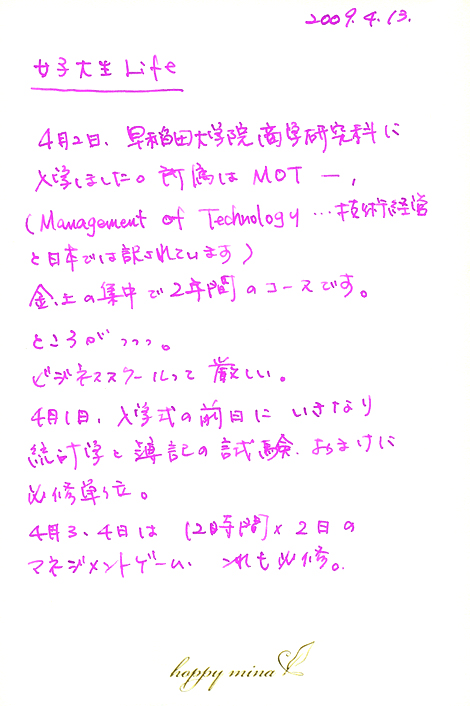 2009.4.13.
女子大生 Life
4月2日、早稲田大学院商学研究科に
入学しました。所属は MOT ー,
(Management of Technology …技術経営
と日本では訳されています)
金、土の集中で2年間のコースです。
ところがっっっ。
ビジネススクールって厳しい。
4月1日、入学式の前日にいきなり
統計学と簿記の試験、おまけに
必修単位。
4月3、4日は 12時間×2日の
マネジメントゲーム、これも必修。
happy mina